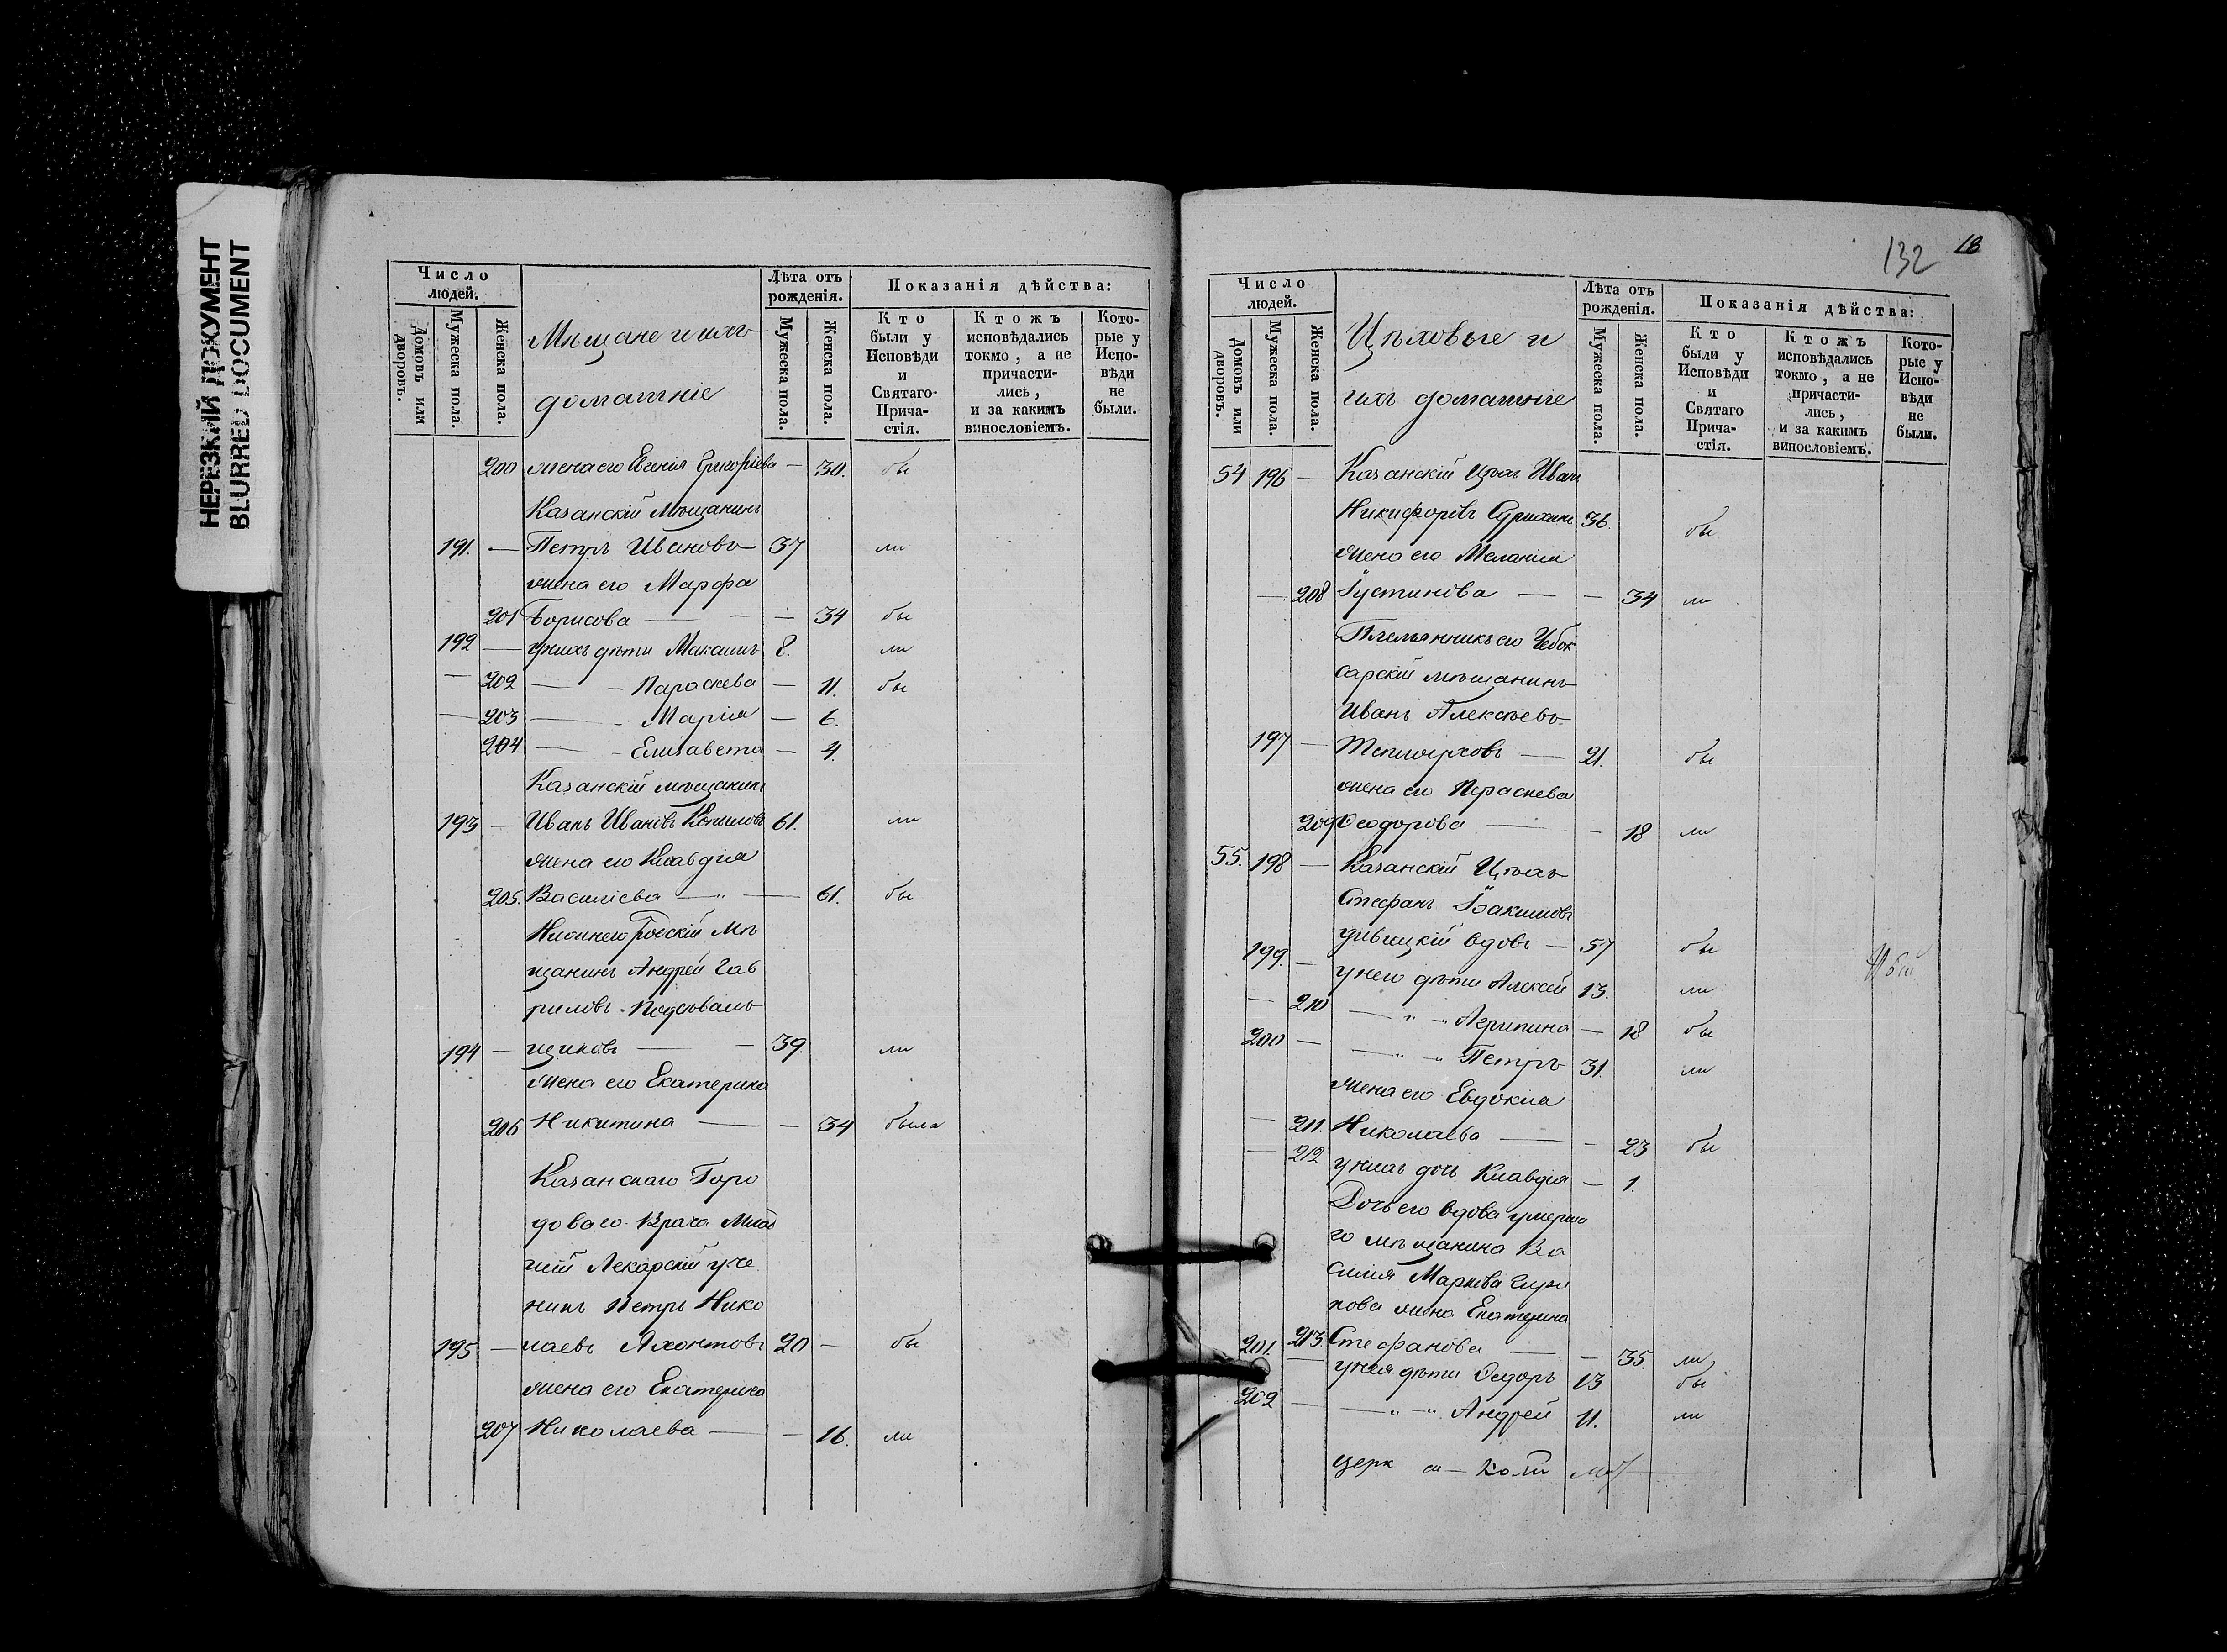 НЕРЕЗКИЙ ДОКУМЕНТ
BLURRED DOCUMENT
Число людей.
Домовъ или дворовъ.
Мужеска пола.
Женска пола.
Мѣщане и ихъ
домашніе
Лѣта отъ рожденія.
Мужеска пола.
Женска пола.
Показанія дѣйства:
Кто были у Исповѣди и Святаго Прича-стія.
Ктожъ исповѣдались токмо, а не причасти-лись, и за какимъ винословіемъ.
Кото-рые у Испо-вѣди не были.
200 жена его Евгенія Григоріева — 30. бы
Казанскій Мѣщанинъ
191. — Петръ Ивановъ 37 ли
жена его Марфа
201 Борисова — — 34 бы
192 — у нихъ дѣти Максимъ 8. ли
— 202 — — Параскева — 11. бы
— 203 — — Марія — 6.
204 — — Елисавета — 4.
Казанскій мѣщанинъ
193 — Иванъ Ивановъ Копыловъ 61. ли
жена его Клавдія
205. Василіева — „ — 61. бы
Нижнегородскій Мѣ
щанинъ Андрей Гав
риловъ Подсоваль
194 — щиковъ — — 39. ли
жена его Екатерина
206 Никитина — — 34 была
Казанскаго Горо
доваго Врача Млад
шій Лекарскій уче
никъ Петръ Нико
195 — лаевъ Ахонтовъ 20 — бы
жена его Екатерина
207 Николаева — — 16. ли
132 13
Число людей.
Домовъ или дворовъ.
Мужеска пола.
Женска пола.
Цѣховые и
ихъ домашніе
Лѣта отъ рожденія.
Мужеска пола.
Женска пола.
Показанія дѣйства:
Кто были у Исповѣди и Святаго Прича-стія.
Ктожъ исповѣдались токмо, а не причасти-лись, и за какимъ винословіемъ.
Кото-рые у Испо-вѣди не были.
54 196 — Казанскій Цѣхъ Иванъ
Никифоровъ 36. бы
жена его Меланія
— 208 Іустинова — — 34 ли
Племянникъ его Чебок
сарскій мѣщанинъ
Иванъ Алексѣевъ
197 — Теплоуховъ — 21. бы
жена его Параскева
209 Ѳеодорова — — 18 ли
55. 198 — Казанскій Цѣхъ
Стефанъ Іоакимовъ
вдовъ — 57 бы
199. — у него дѣти Алексѣй 13. ли
— 210 — „ — Агрипина — 18 бы
200 — — „ — Петръ 31. ли
жена его Евдокія
— 211. Николаева — — 23 бы
— 212 у нихъ дочь Клавдія — 1.
Дочь его вдова умерша
го мѣщанина Ва
силія Маркова
кова жена Екатерина
213. Стефанова — — 35 ли
201. — у нея дѣти Ѳедоръ 13 бы
202 — — „ — Андрей 11. ли